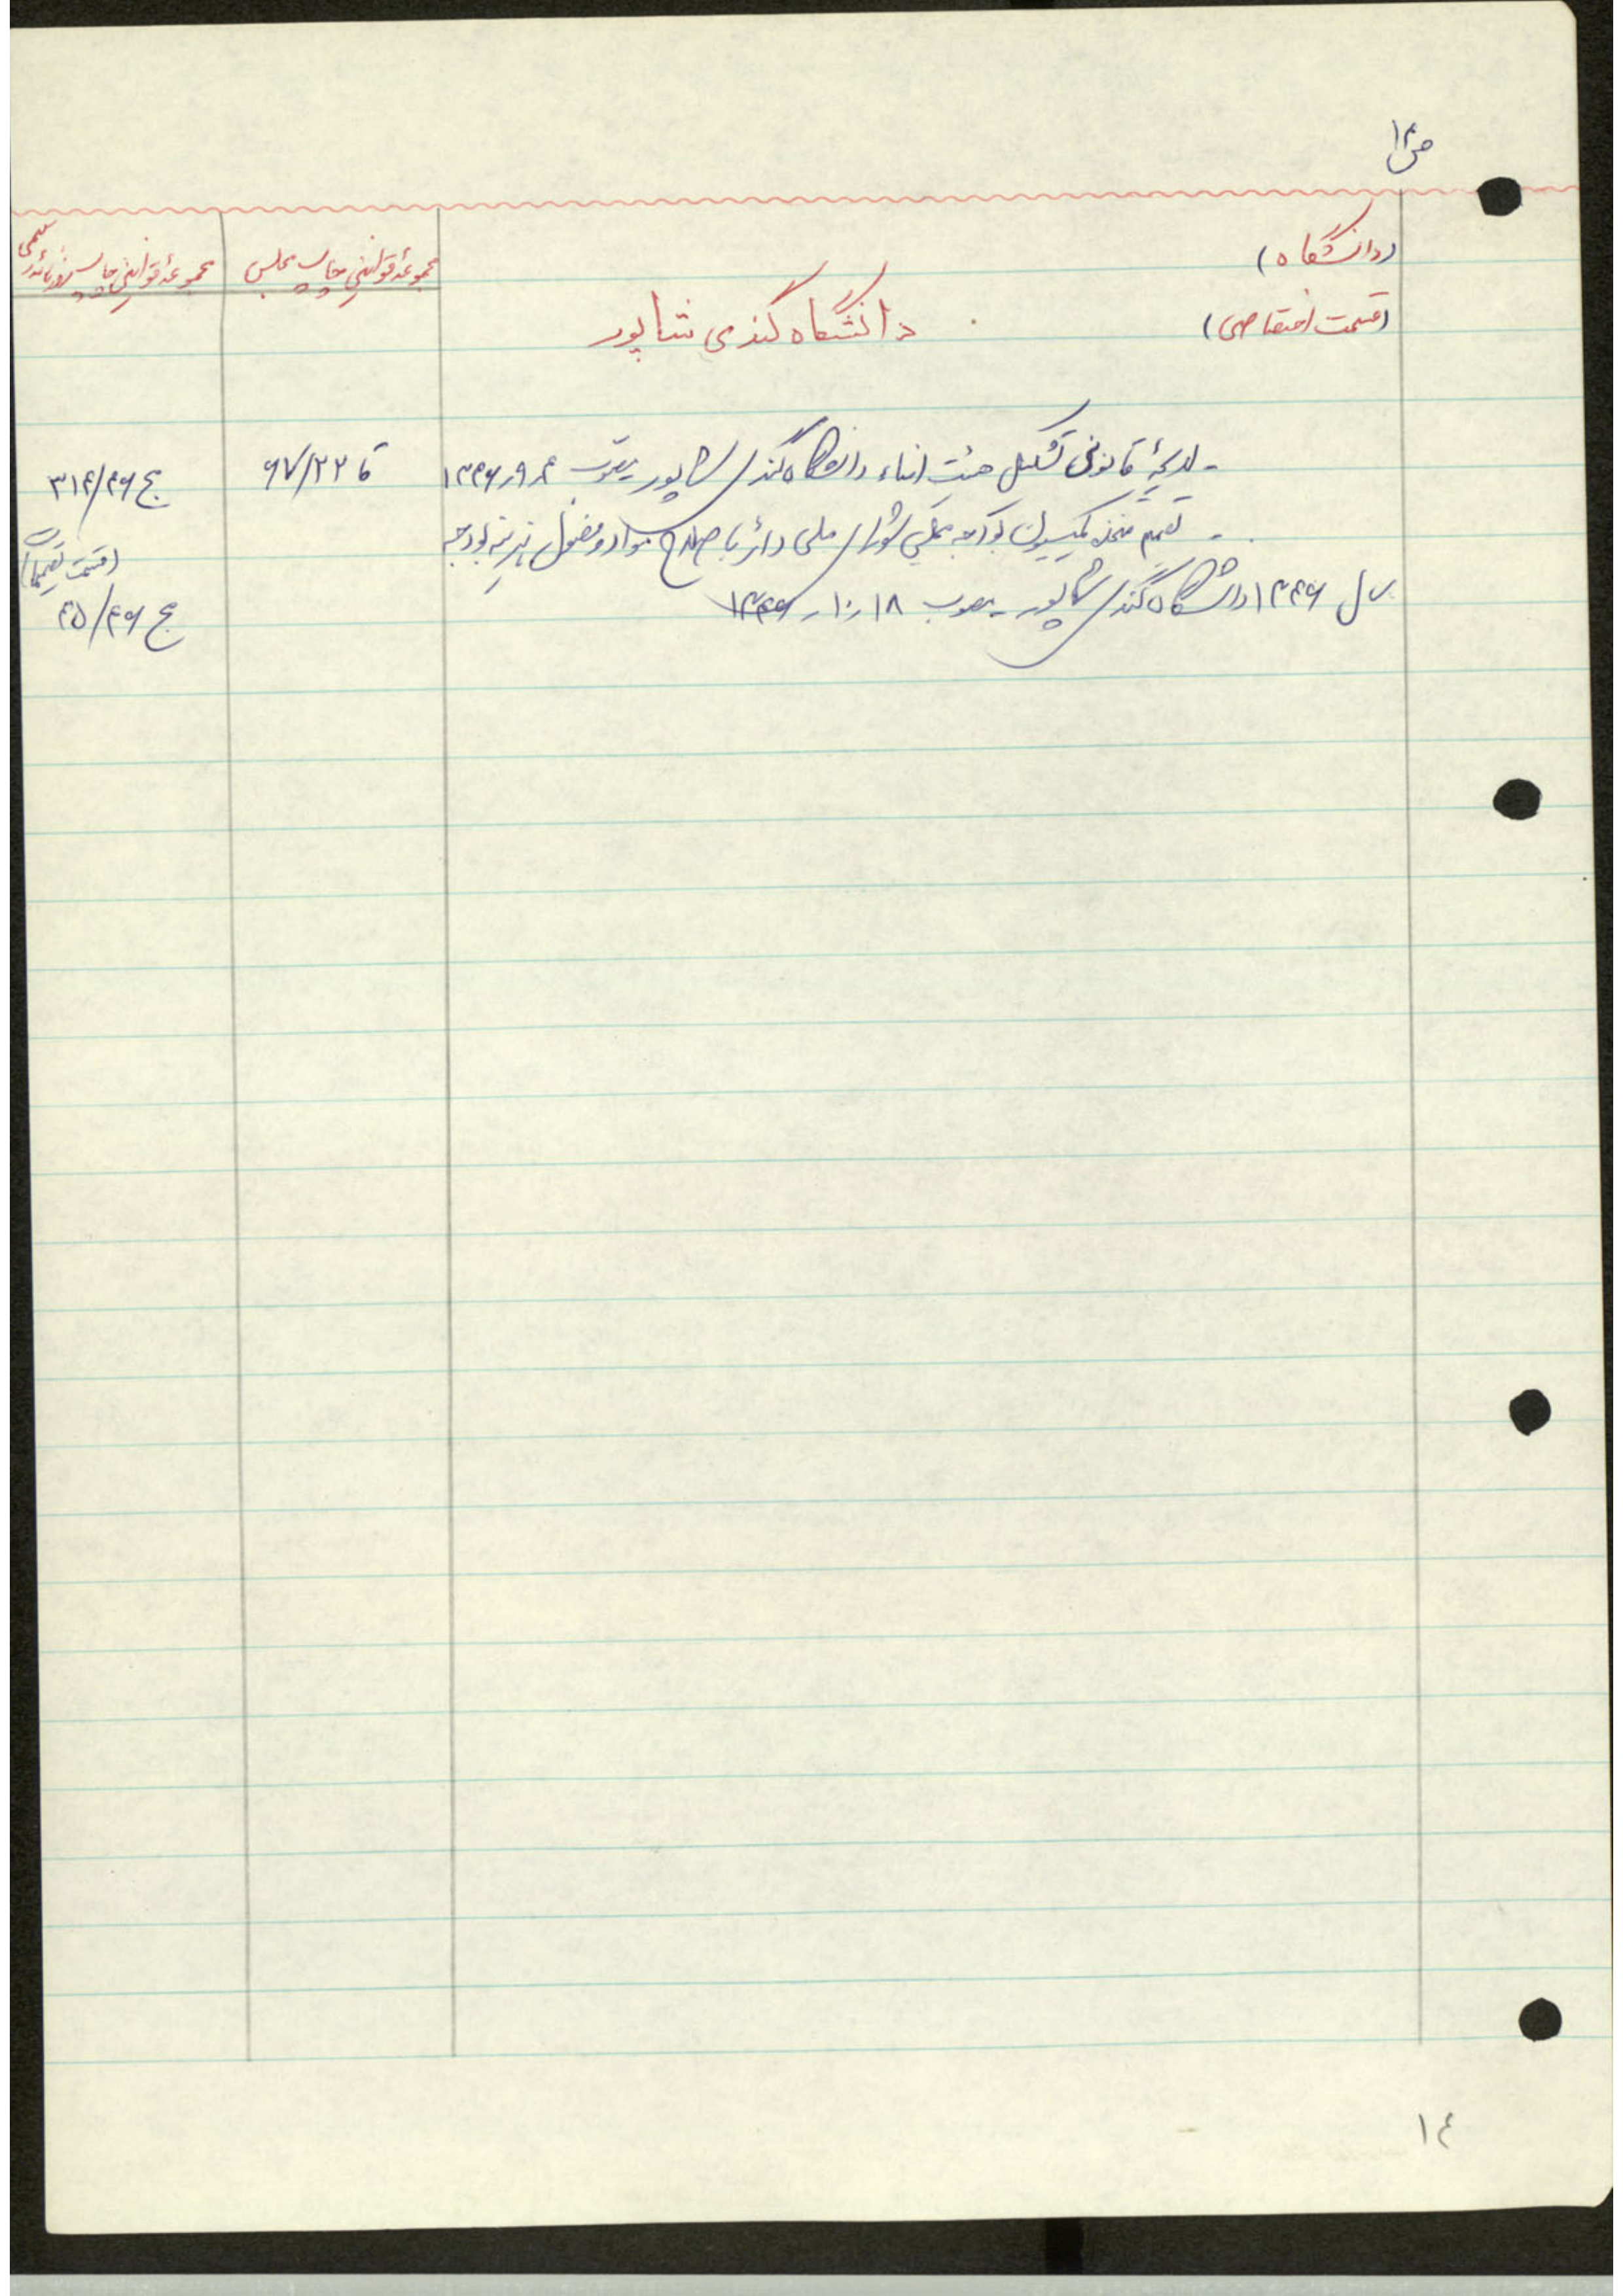 ص ۱۴
(دانشگاه)
(قسمت اختصاصی)
دانشگاه گندی شاپور
مجموعه قوانین چاپ مجلس
مجموعه قوانین چاپ روزنامه رسمی
- لایحهٔ قانونی تشکیل هیئت امناء دانشگاه گندی شاپور مصوب ۴ر۹ر۱۳۴۶
قا ۶۷/۲۲
ج ۳۱۴/۴۶
- تصمیم متخذه کمیسیون بودجه مجلس شورای ملی دائر باصلاح مواد و فصول هزینه بودجه
سال ۱۳۴۶ دانشگاه گندی شاپور - مصوب ۱۸ر۱۰ر۱۳۴۶
(قسمت تصمیمات)
ج ۴۵/۴۶
۱۴